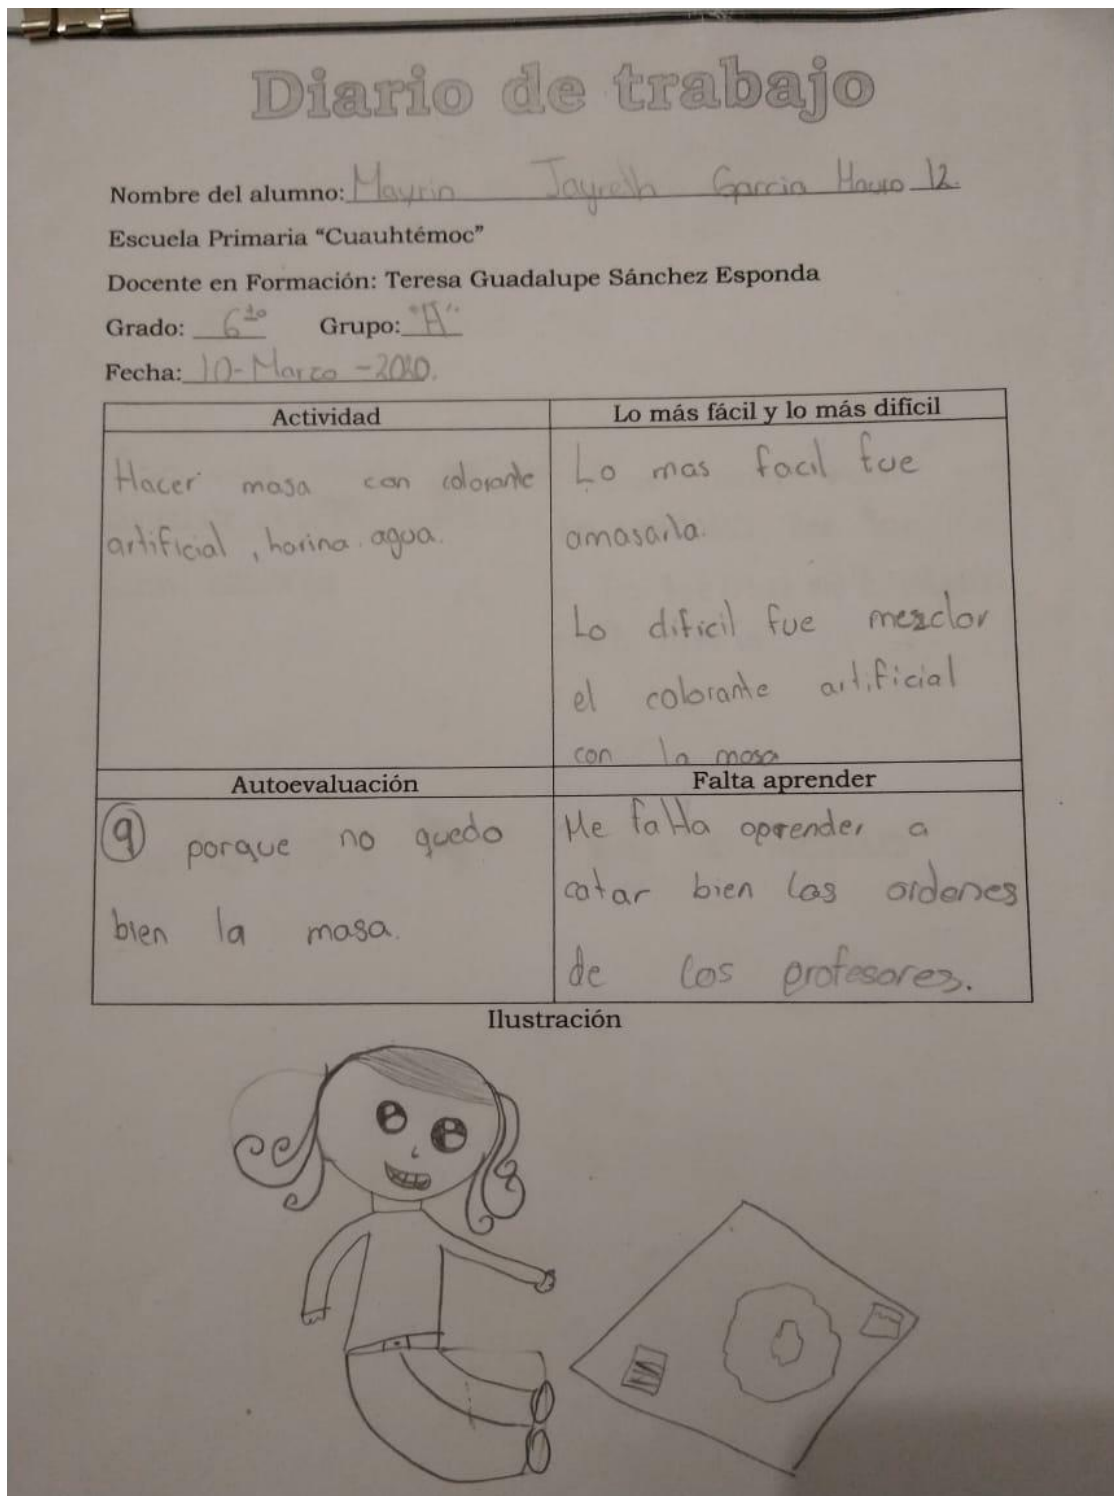 Diario de trabajo
Nombre del alumno: Mayrin Jayreth Garcia Mauro 12.
Escuela Primaria “Cuauhtémoc”
Docente en Formación: Teresa Guadalupe Sánchez Esponda
Grado: 6to Grupo: "A"
Fecha: 10-Marzo-2020.
Actividad
Hacer masa con colorante
artificial, harina. agua.
Lo más fácil y lo más difícil
Lo mas facil fue
amasarla.
Lo dificil fue mezclar
el colorante artificial
con la masa
Autoevaluación
9 porque no quedo
bien la masa.
Falta aprender
Me falta aprender a
catar bien las ordenes
de los profesores.
Ilustración